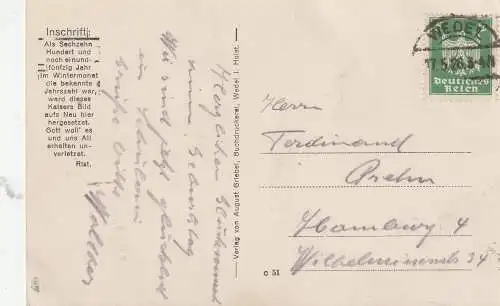 Inschrift:
Als Sechzehn
Hundert und
noch einund-
fünfzig Jahr
Im Wintermonat
die bekannte
Jahrzahl war,
ward dieses
Kaisers Bild
aufs Neu hier
hergesetzet.
Gott woll' es
und uns All
erhalten un-
verletzet.
Rist.
Herzlichen Glückwunsch
zum Geburtstag
Wir sind jetzt glücklich
in
Grüße
Verlag von August Griebel, Buchdruckerei, Wedel i. Holst.
WEDEL
17.5.26
5
Deutsches
Reich
Herrn
Ferdinand
Prehn
Hamburg 4
Wilhelminenstr 34
C 51